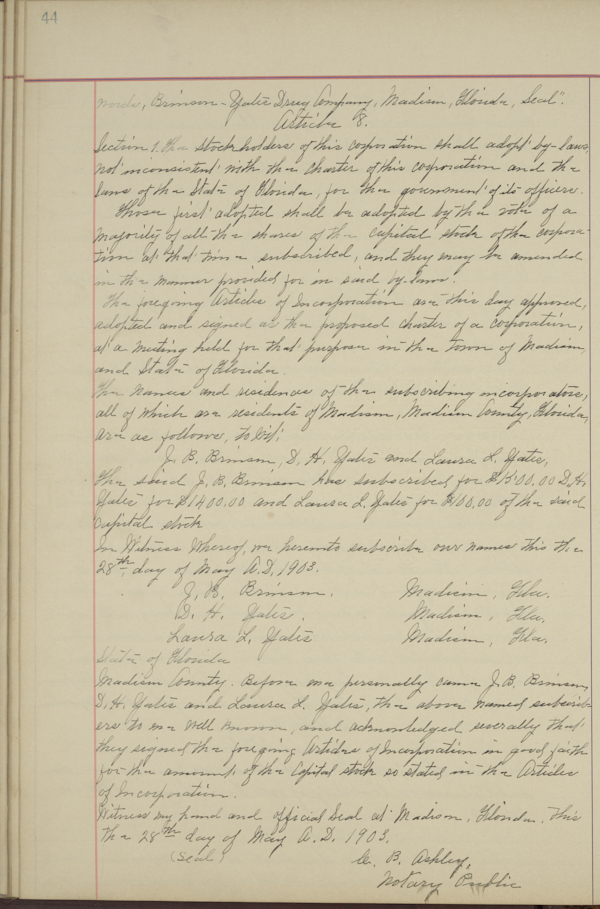 44
words, Brinson-Yates Drug Company, Madison, Florida, Seal".
Article 8.
Section 1. The stockholders of this corporation shall adopt by-laws,
not inconsistent with the charter of this corporation and the
laws of the State of Florida, for the government of its officers.
Those first adopted shall be adopted by the vote of a
majority of all the shares of the capital stock of the corpora-
tion at that time subscribed, and they may be amended
in the manner provided for in said by-laws.
The foregoing Articles of Incorporation are this day approved,
adopted and signed as the proposed charter of a corporation,
at a meeting held for that purpose in the Town of Madison,
and State of Florida.
The names and residences of the subscribing incorporators,
all of which are residents of Madison, Madison County, Florida,
are as follows, to wit:
J. B. Brinson, D. H. Yates and Laura L. Yates,
The said J. B. Brinson has subscribed for $1500.00 D. H.
Yates for $1400.00 and Laura L. Yates for $100.00 of the said
Capital stock
In Witness Whereof, we hereunto subscribe our names this the
28th day of May A.D. 1903.
J. B. Brinson. Madison, Fla.
D. H. Yates. Madison, Fla.
Laura L. Yates Madison, Fla.
State of Florida
Madison County. Before me personally came J. B. Brinson,
D. H. Yates and Laura L. Yates, the above named subscrib
ers to me well known, and acknowledged severally that
they signed the foregoing Articles of Incorporation in good faith
for the amounts of the Capital stock so stated in the Articles
of Incorporation.
Witness my hand and official Seal at Madison, Florida, This
the 28th day of May A. D. 1903.
(Seal) C. B. Ashley,
Notary Public